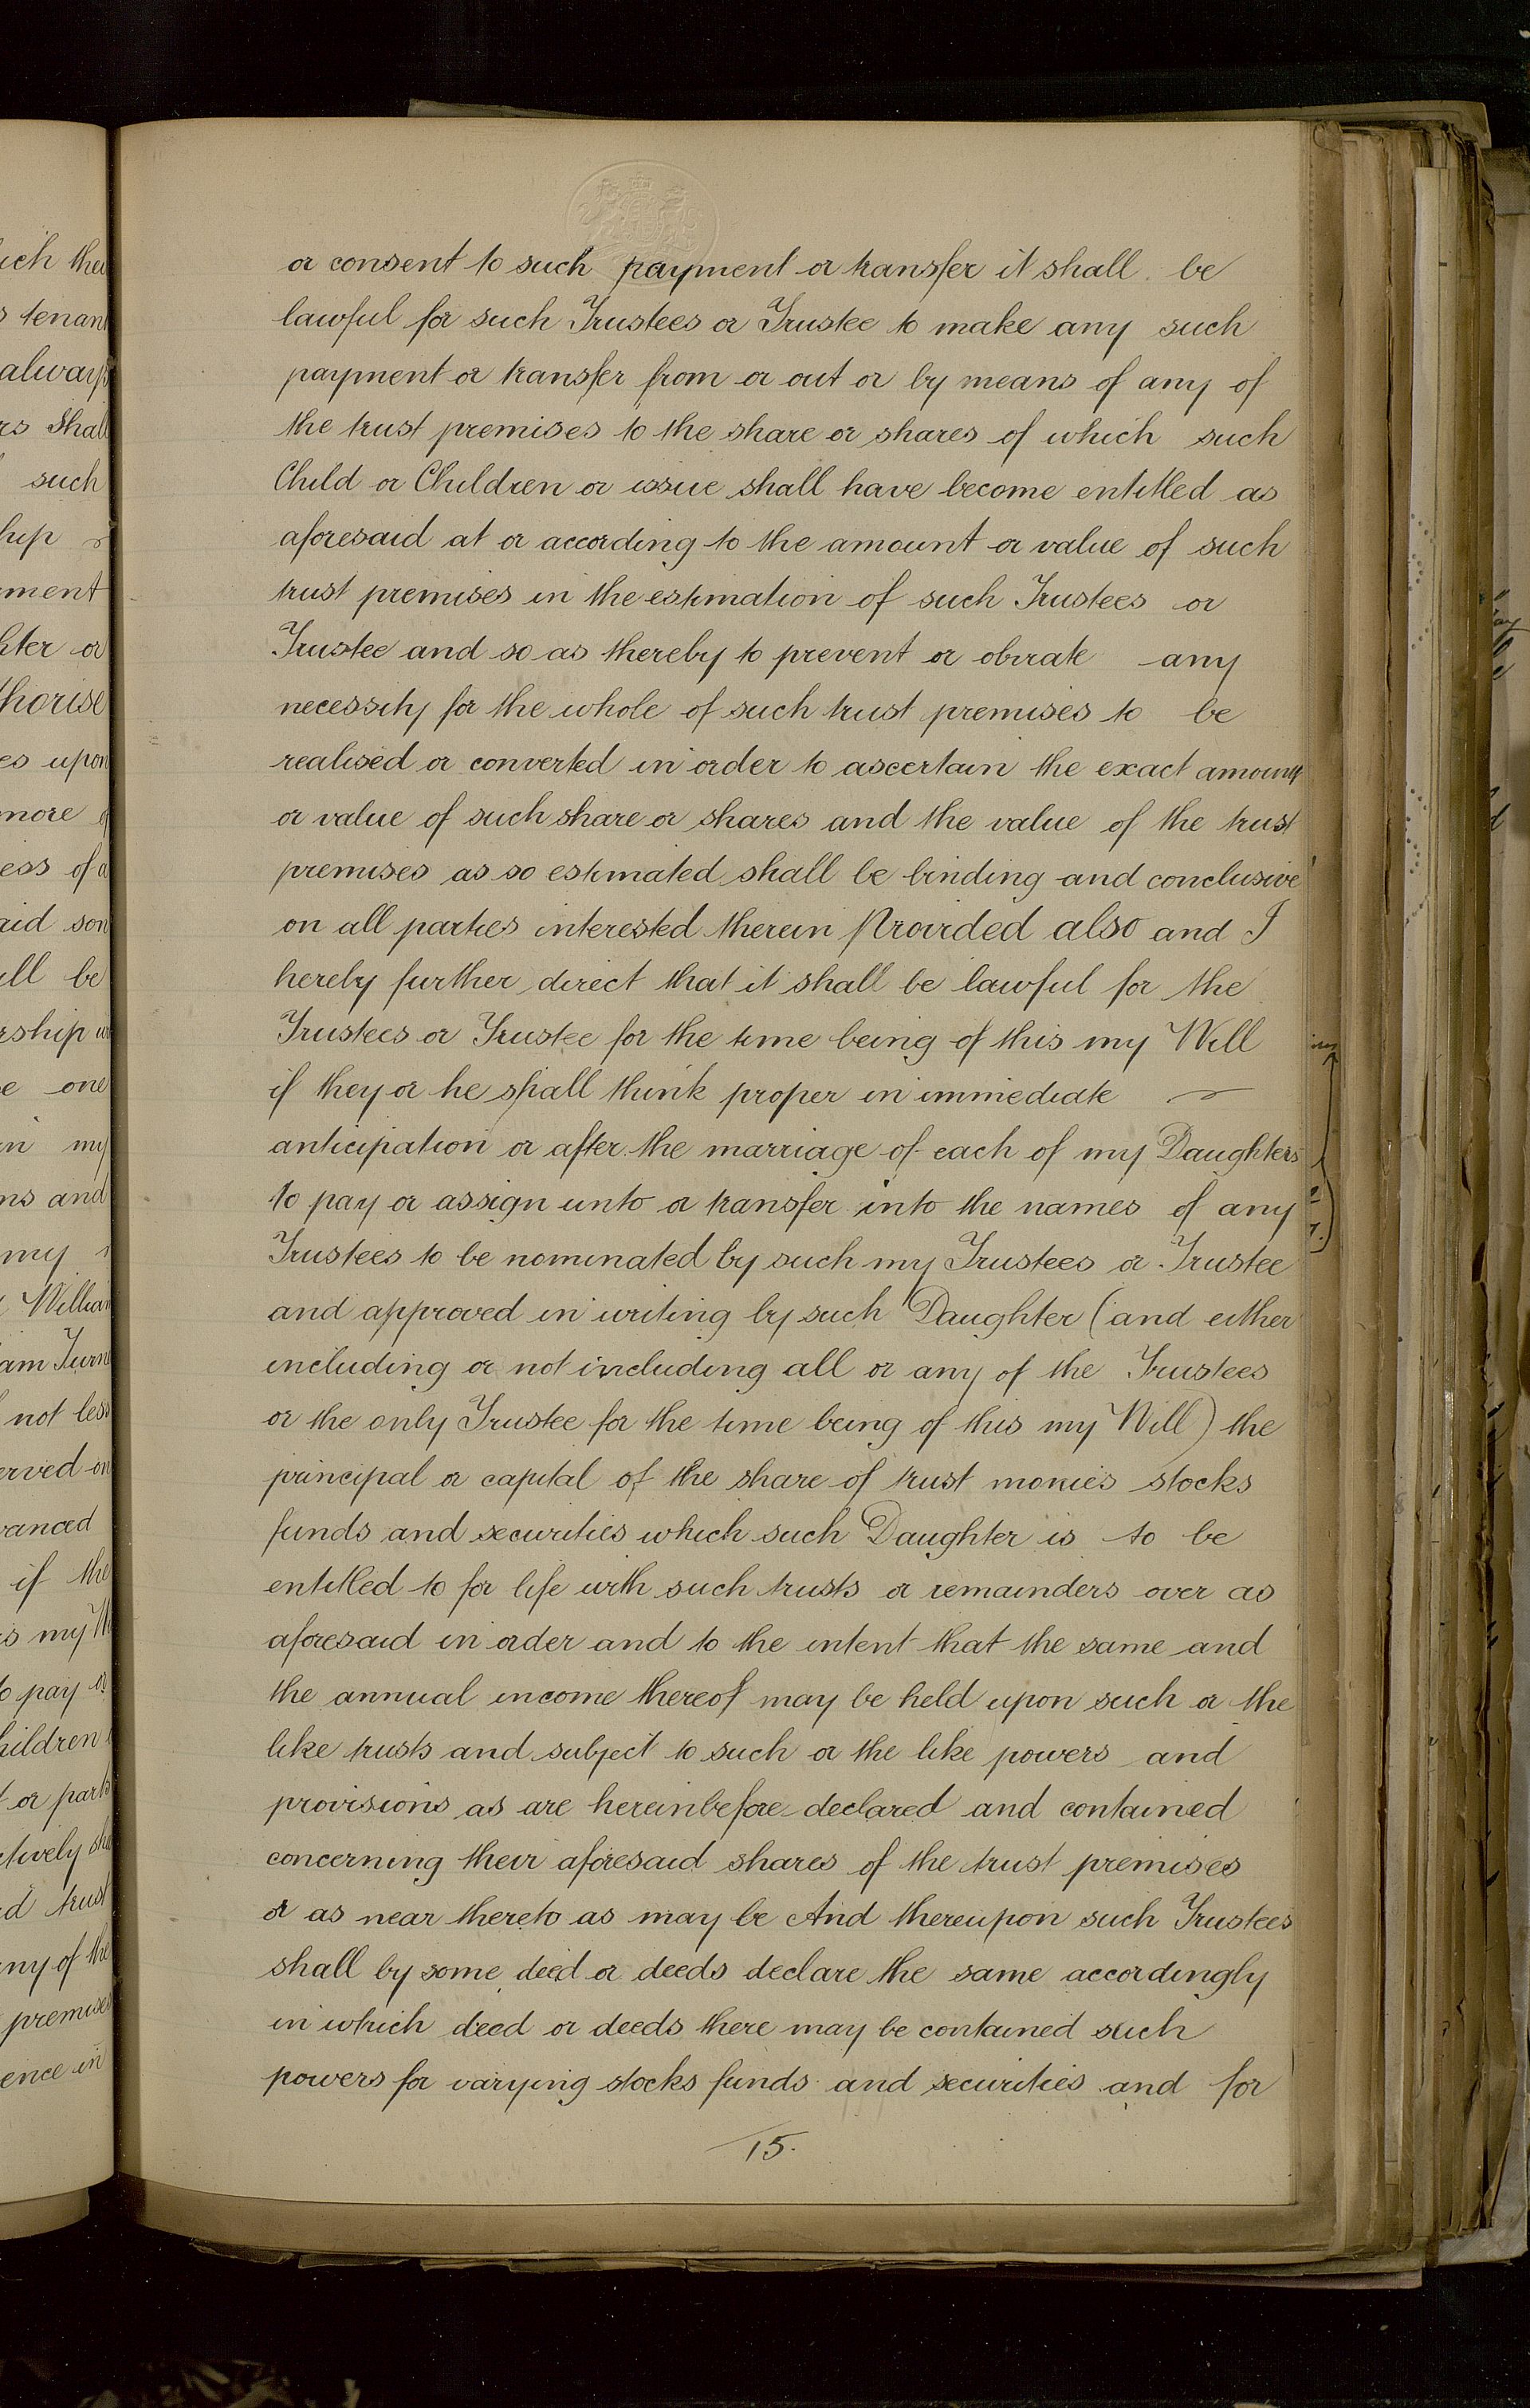 or consent to such payment or transfer it shall be
lawful for such Trustees or Trustee to make any such
payment or transfer from or out or by means of any of
the trust premises to the share or shares of which such
Child or Children or issue shall have become entitled as
aforesaid at or according to the amount or value of such
trust premises in the estimation of such Trustees or
Trustee and so as thereby to prevent or obviate any
necessity for the whole of such trust premises to be
realised or converted in order to ascertain the exact amount
or value of such share or shares and the value of the trust
premises as so estimated shall be binding and conclusive
on all parties interested therein Provided also and I
hereby further direct that it shall be lawful for the
Trustees or Trustee for the time being of this my Will
if they or he shall think proper in immediate
anticipation or after the marriage of each of my Daughters
to pay or assign unto or transfer into the names of any
Trustees to be nominated by such my Trustees or Trustee
and approved in writing by such Daughter (and either
including or not including all or any of the Trustees
or the only Trustee for the time being of this my Will) the
principal or capital of the share of trust monies stocks
funds and securities which such Daughter is to be
entitled to for life with such trusts or remainders over as
aforesaid in order and to the intent that the same and
the annual income thereof may be held upon such or the
like trusts and subject to such or the like powers and
provisions as are hereinbefore declared and contained
concerning their aforesaid shares of the trust premises
or as near thereto as may be And thereupon such Trustees
shall by some deed or deeds declare the same accordingly
in which deed or deeds there may be contained such
powers for varying stocks funds and securities and for
15.